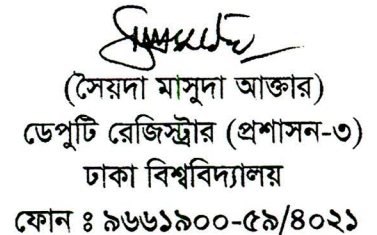 (সৈয়দা মাসুদা আক্তার)
ডেপুটি রেজিস্ট্রার (প্রশাসন-৩)
ঢাকা বিশ্ববিদ্যালয়
ফোন ঃ ৯৬৬১৯০০-৫৯/৪০২১